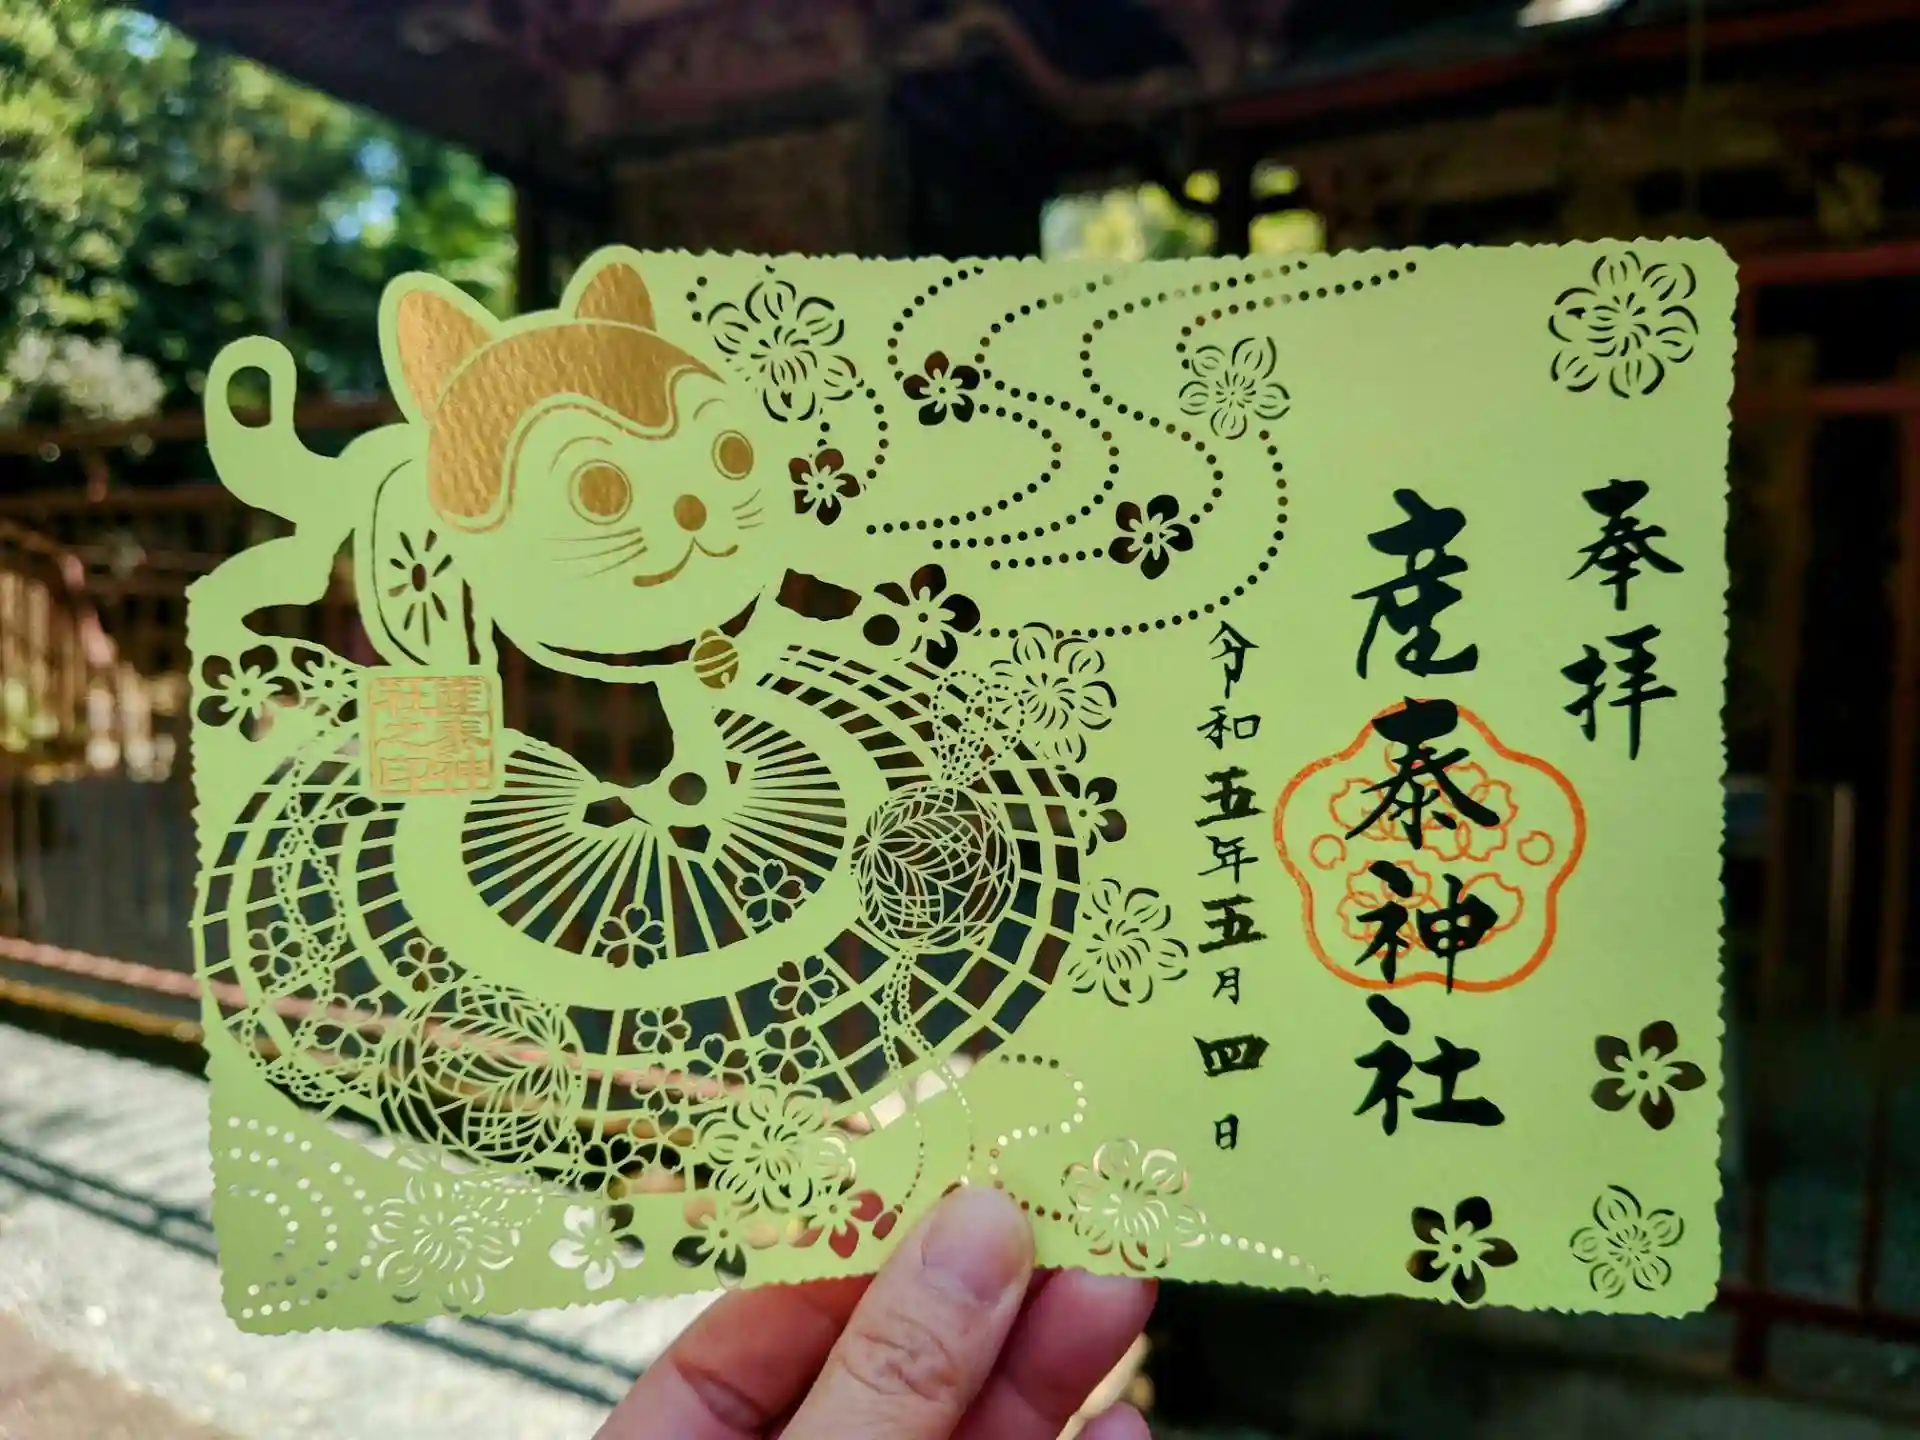 奉拝
産泰神社
令和五年五月四日
産泰神
社之印